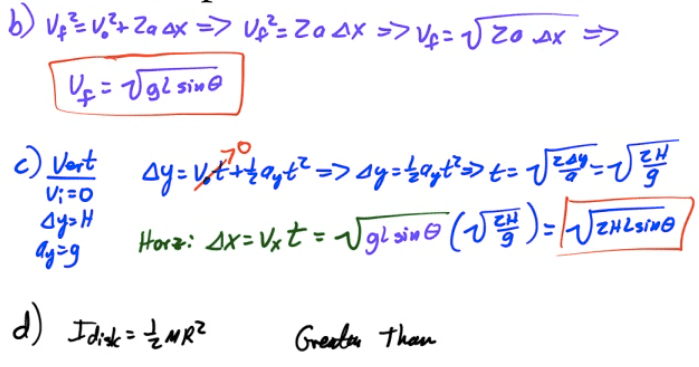 b) V_f² = V_0² + 2a Δx => V_f² = 2a Δx => V_f = √(2a Δx) =>
V_f = √(gL sinθ)
c) Vert Δy = V_0t→0 + ½a_yt² => Δy = ½a_yt² => t = √(2Δy/a) = √(2H/g)
V_i = 0
Δy = H
a_y = g
Horz: Δx = V_x t = √(gL sinθ) (√(2H/g)) = √(2HL sinθ)
d) I_disk = ½MR² Greater Than